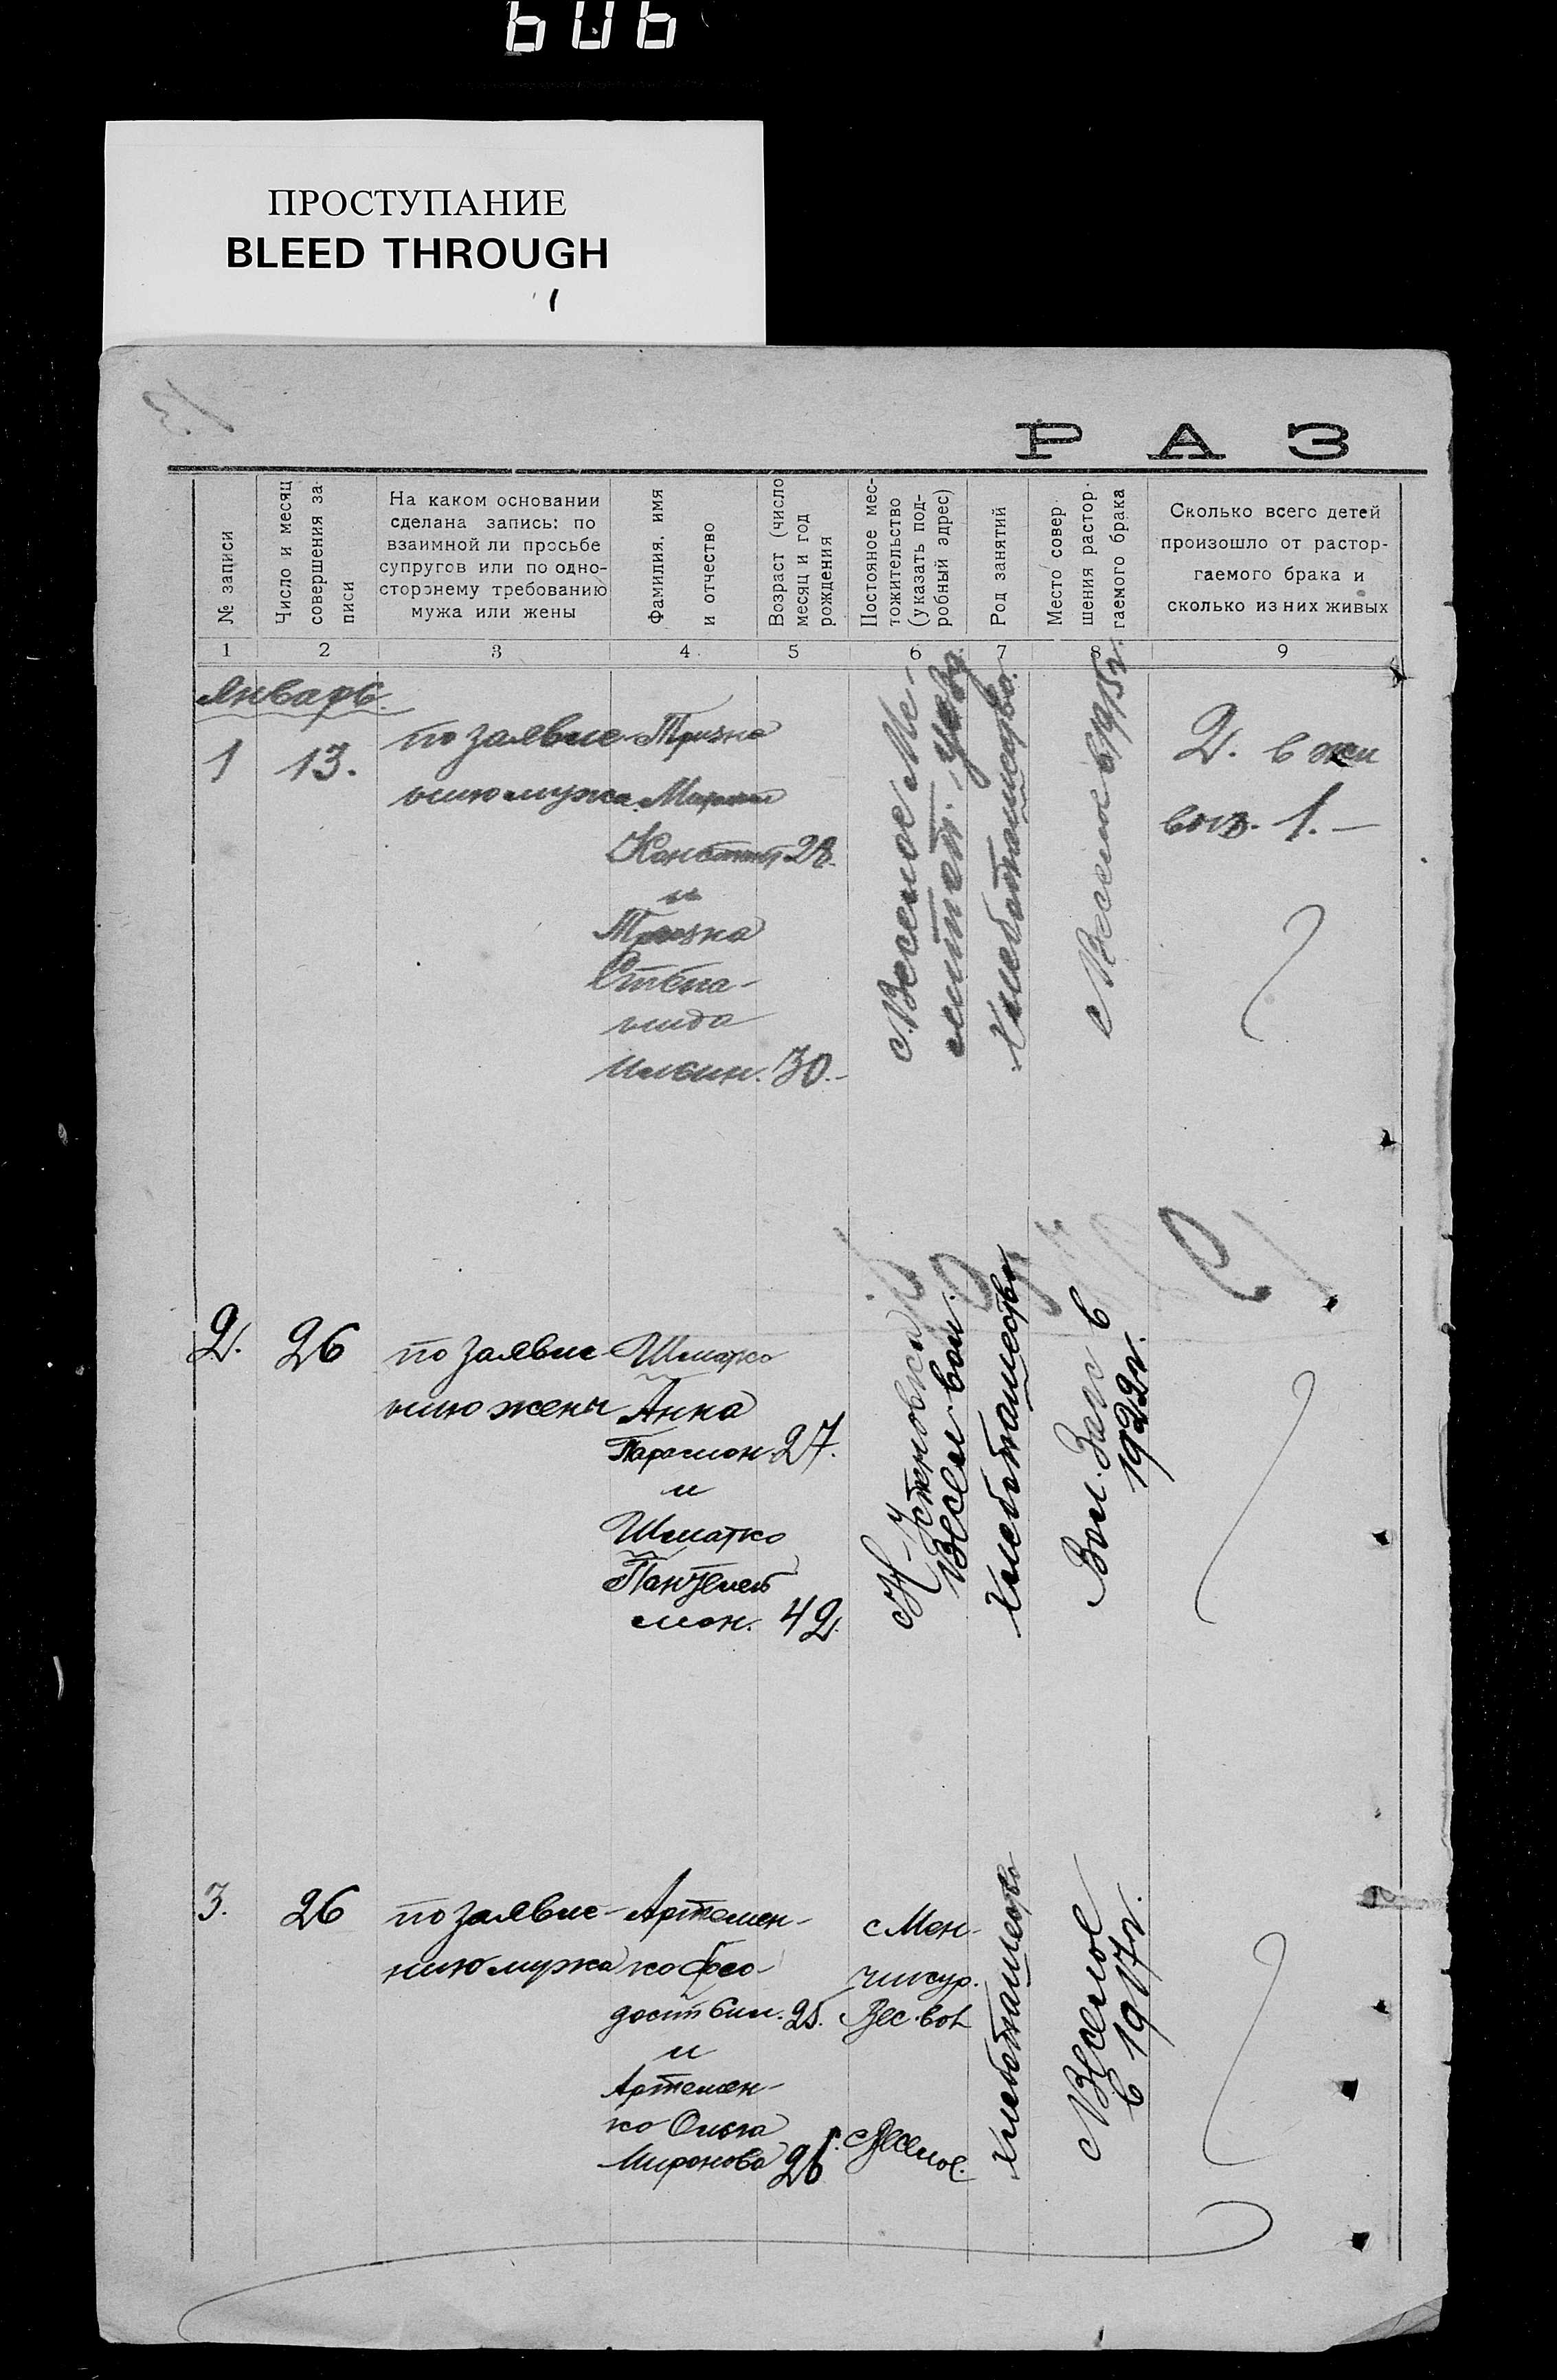 606
ПРОСТУПАНИЕ
BLEED THROUGH
13
РАЗ
№ записи
Число и месяц
совершения за-
писи
На каком основании
сделана запись: по
взаимной ли просьбе
супругов или по одно-
стороннему требованию
мужа или жены
Фамилия, имя
и отчество
Возраст (число
месяц и год
рождения
Постояное мес-
тожительство
(указать под-
робный адрес)
Род занятий
Место совер-
шения растор-
гаемого брака
Сколько всего детей
произошло от растор-
гаемого брака и
сколько из них живых
1 2 3 4 5 6 7 8 9
Январь.
1 13. по заявле-
нию мужа
Тризна
Констант 28.
и
Тризна
Степа-
нида
Ильин. 30.
с. Веселое Ме-
литоп. уезд.
Хлебопашество.
с Веселое в 1915 г.
2. в жи
вых. 1. –
2. 26 по заявле-
нию жены
Шматко
Анна
Парамон. 27.
и
Шматко
Пантелей
мон. 42.
Весел. вол.
Хлебопашество
Вол. Загс в
1922 г.
3. 26 по заявле-
нию мужа
Артемен-
ко Фео-
дост 25.
и
Артемен-
ко Ольга
Миронова 26.
с Мен-
чикур.
Вес. вол
с Веселое.
Хлебопашество
с Веселое
в 1917 г.